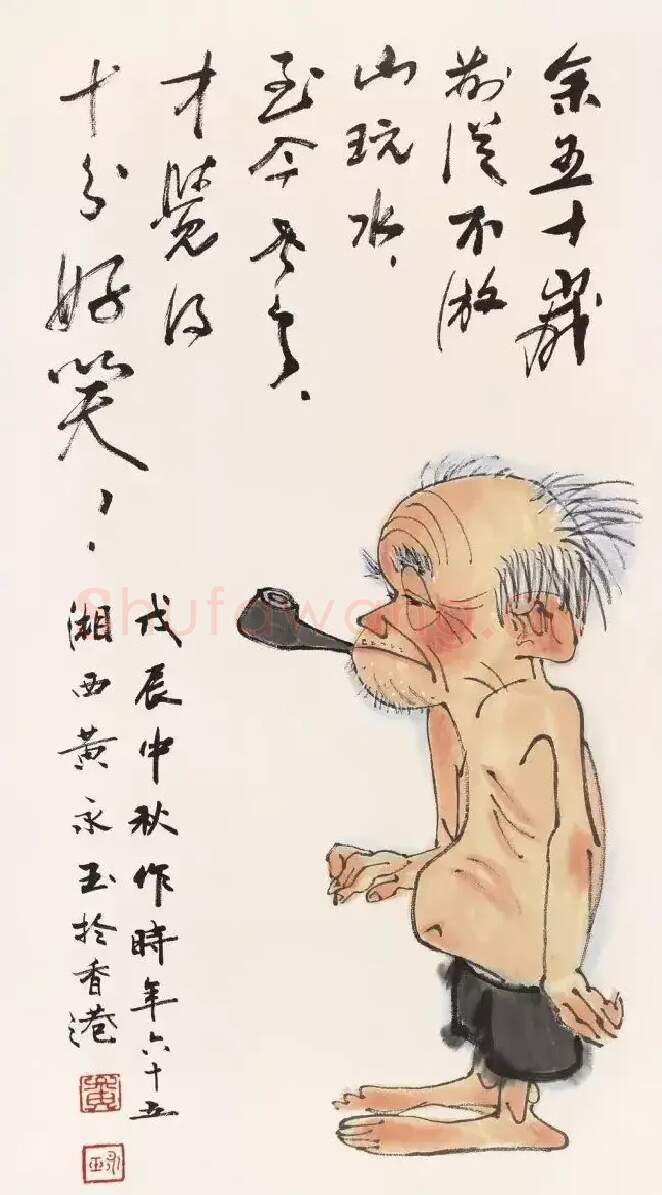 余五十歲
前從不游
山玩水、
至今老了、
才覺得
十分好笑！
戊辰中秋作時年六十五
湘西黃永玉於香港
黃
永玉
Shufawang.cn